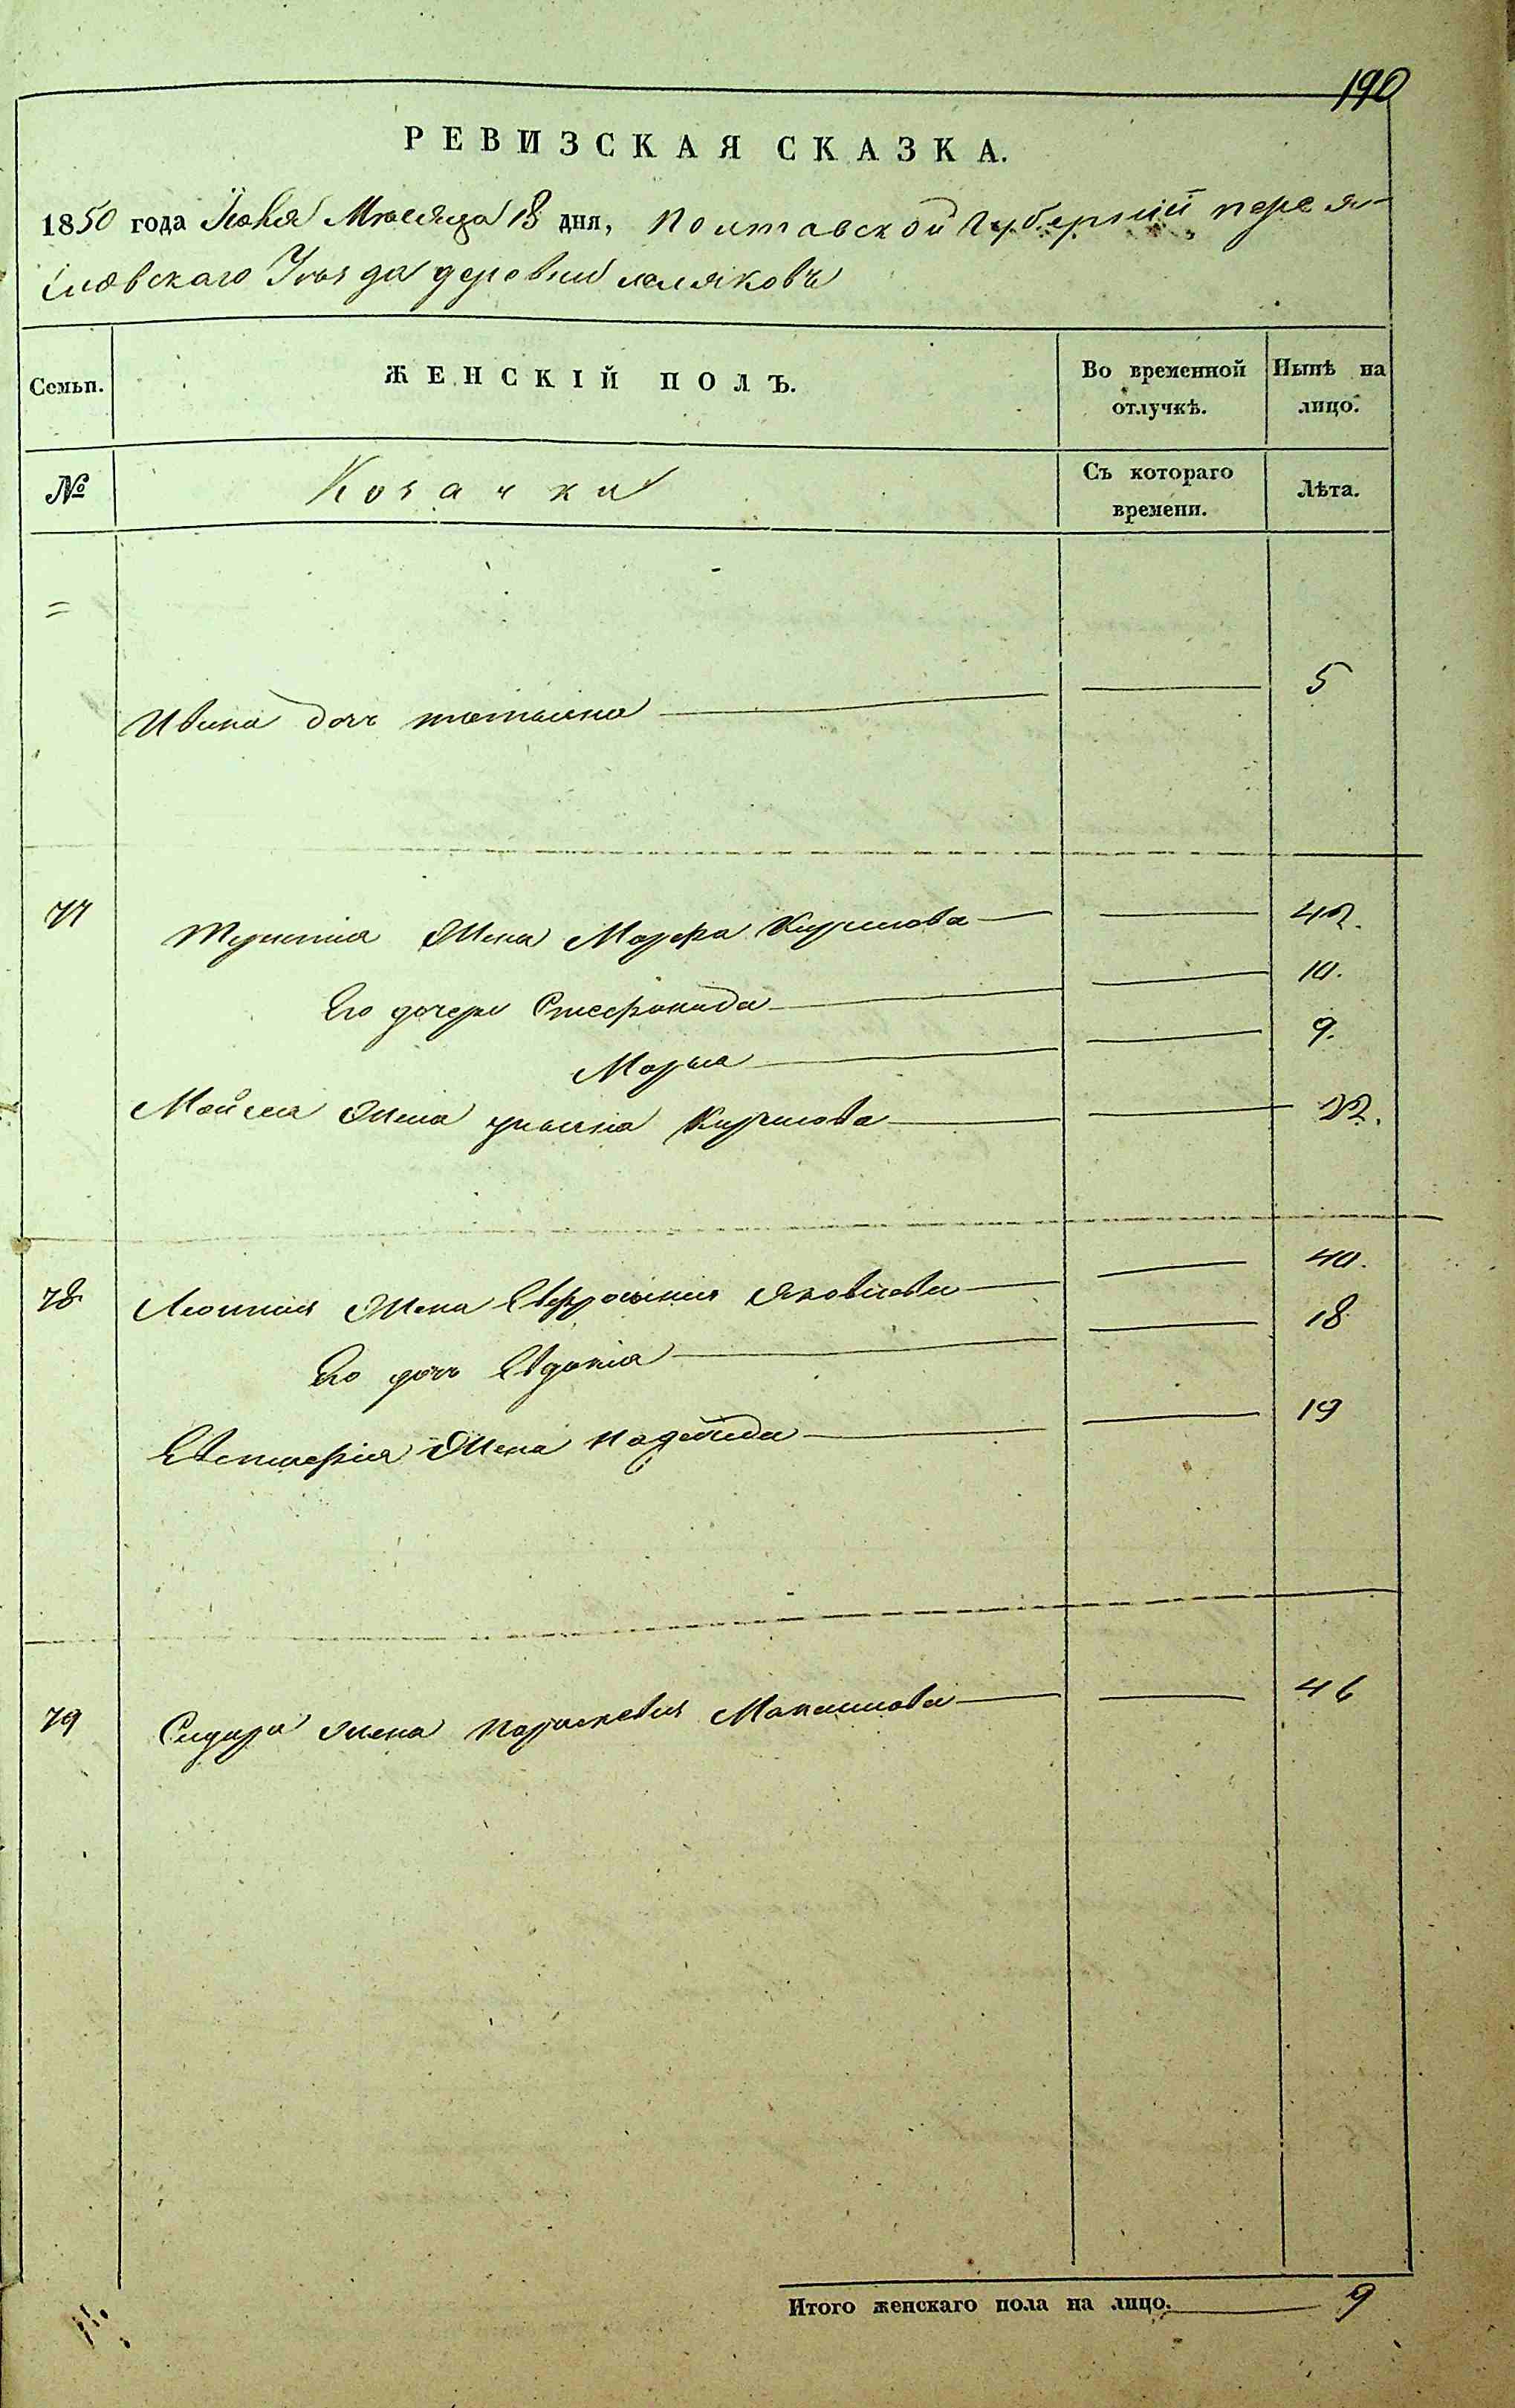 190
РЕВИЗСКАЯ СКАЗКА.
1850 года Июня Мѣсяца 18 дня, Полтавской Губерніи перея-
славскаго Уѣзда деревни Маляковъ
Семьи. ЖЕНСКІЙ ПОЛЪ. Во временной отлучкѣ. Нынѣ на лицо.
№ Козачки Съ котораго времени. Лѣта.
=
дочь татьяна 5
77 Терентія Жена Марфа Кирилова 42.
Его дочери Стефанида 10.
Марья 9.
Мойсея Жена ульяна Кирилова 22.
78 Леонтия Жена Евфросиния Яковлева 40.
Его дочь Евдокія 18
Евстафія Жена Надежда 19
79 Сидора жена Параскевия Максимова 46
Итого женскаго пола на лицо. 9